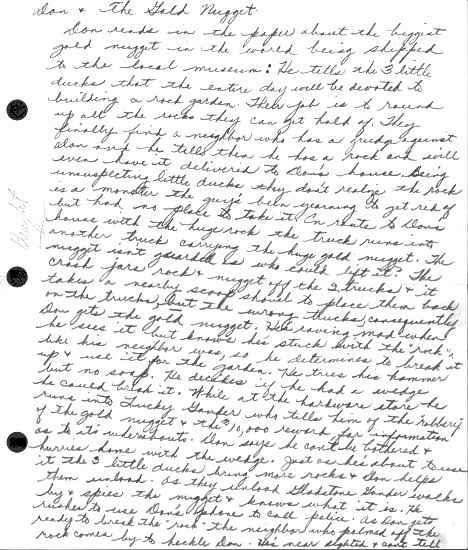 Don & The Gold Nugget
Don reads in the paper about the biggest
gold nugget in the world being shipped
to the local museum: He tells the 3 little
ducks that the entire day will be devoted to
building a rock garden. Their job is to round
up all the rocks they can get hold of. They
finally find a neighbor who has a grudge against
Don and he tells them he has a rock and will
even have it delivered to Don's house. Being
unsuspecting little ducks they don't realize the rock
is a monster the guy's been yearning to get rid of
but had no place to take it. En route to Don's
house with the huge rock the truck runs into
another truck carrying the huge gold nugget. The
nugget isn't guarded as who could lift it? The
crash jars rock & nugget off the 2 trucks & it
takes a nearby scoop shovel to place them back
on the trucks, but the wrong trucks, consequently
Don gets the gold nugget. He's raving mad when
he sees it but knows he's stuck with the "rock",
like his neighbor was, so he determines to break it
up & use it for the garden. He tries his hammer
but no soap. He decides if he had a wedge
he could break it. While at the hardware store he
runs into Lucky Gander who tells him of the robbery
of the gold nugget & the $10,000 reward for information
as to its whereabouts. Don says he can't be bothered &
hurries home with the wedge. Just as he's about to use
it the 3 little ducks bring more rocks & Don helps
them unload. As they unload Gladstone Gander walks
by & spies the nugget & knows what it is. He
rushes to use Don's phone to call police. As Don gets
ready to break the "rock" the neighbor who palmed off the
rock comes by to heckle Don. He's near sighted & can't tell